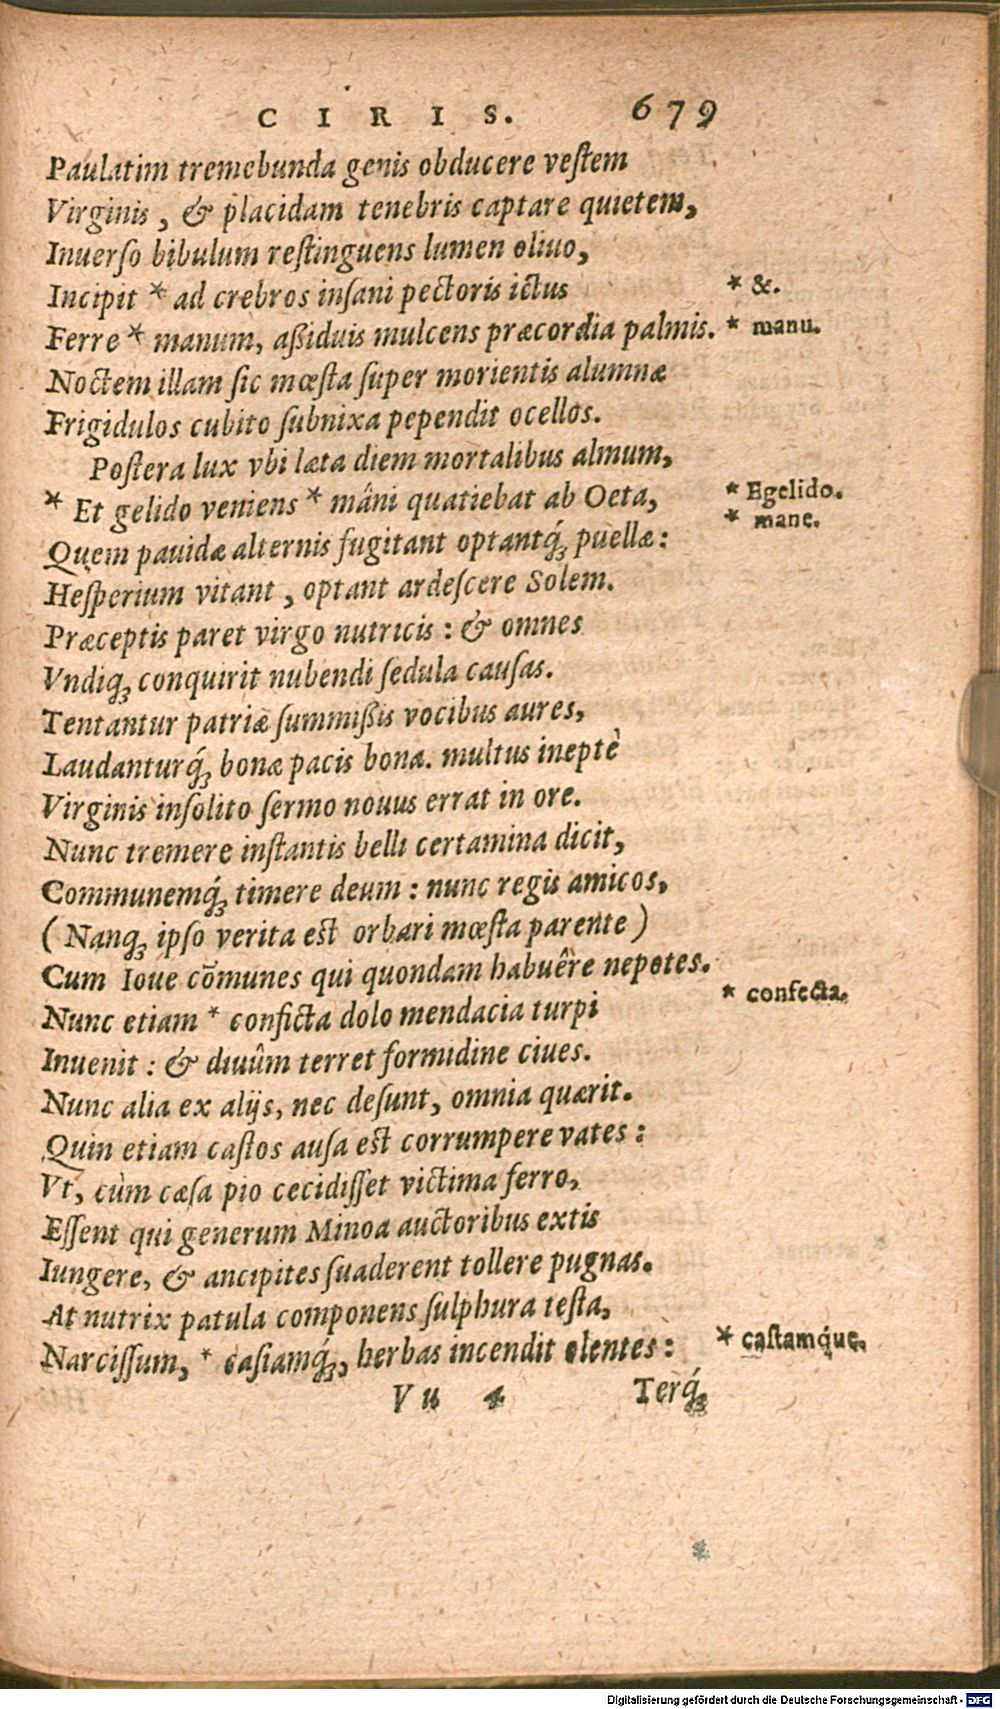 CIRIS. 679
Paulatim tremebunda genis obducere veſtem
Virginis, & placidam tenebris captare quietem,
Inuerſo bibulum reſtinguens lumen oliuo,
Incipit * ad crebros inſani pectoris ictus * &.
Ferre * manum, aßiduis mulcens præcordia palmis. * manu.
Noctem illam ſic mœſta ſuper morientis alumnæ
Frigidulos cubito ſubnixa pependit ocellos.
Poſtera lux vbi læta diem mortalibus almum,
* Et gelido veniens * mâni quatiebat ab Oeta, * Egelido.
* mane.
Quem pauidæ alternis fugitant optantq́; puellæ:
Heſperium vitant, optant ardeſcere Solem.
Præceptis paret virgo nutricis: & omnes
Vndiq; conquirit nubendi ſedula cauſas.
Tentantur patriæ ſummißis vocibus aures,
Laudanturq́; bonæ pacis bona. multus ineptè
Virginis inſolito ſermo nouus errat in ore.
Nunc tremere inſtantis belli certamina dicit,
Communemq́; timere deum: nunc regis amicos,
(Nanq; ipſo verita est orbari mœſta parente)
Cum Ioue cōmunes qui quondam habuêre nepotes.
Nunc etiam * conficta dolo mendacia turpi * confecta.
Inuenit: & diuûm terret formidine ciues.
Nunc alia ex alijs, nec deſunt, omnia quærit.
Quin etiam caſtos auſa est corrumpere vates:
Vt, cùm cæſa pio cecidiſſet victima ferro,
Eſſent qui generum Minoa auctoribus extis
Iungere, & ancipites ſuaderent tollere pugnas.
At nutrix patula componens ſulphura teſta,
Narciſſum, * caſiamq́;, herbas incendit olentes: * caſtamq́ue.
Vu 4 Terq́;
Digitalisierung gefördert durch die Deutsche Forschungsgemeinschaft - DFG